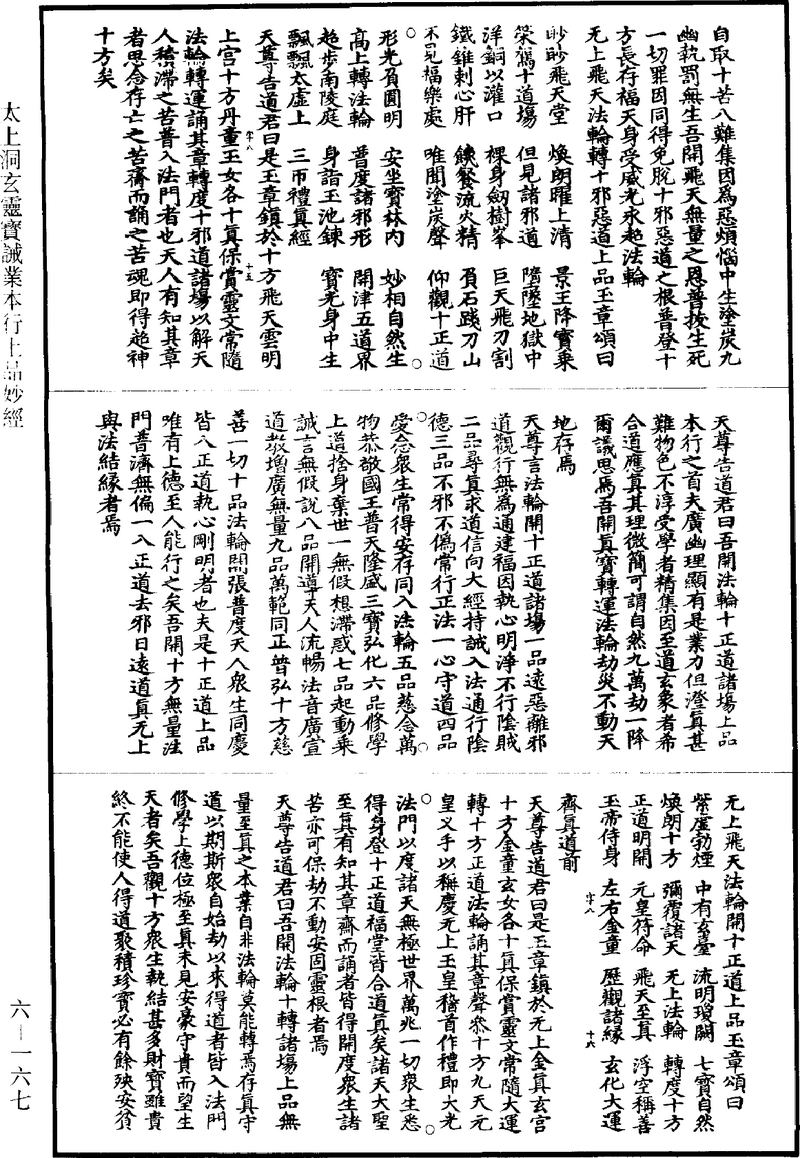 自取十苦八難集因為惡煩惱中生塗炭九
幽執罰無生吾開飛天無量之恩普拔生死
一切罪因同得免脫十邪惡道之根普登十
方長存福天身受威光永超法輪
无上飛天法輪轉十邪惡道上品玉章頌曰
眇眇飛天堂 煥朗曜上清 景王降寶乘
策駕十道場 但見諸邪道 墮墜地獄中
洋銅以灌口 裸身劒樹峯 巨天飛刀割
鐵錐刺心肝 餧餐流火精 負石踐刀山
不見福樂處 唯聞塗炭聲 仰觀十正道
形光負圓明 安坐寶林內 妙相自然生
高上轉法輪 普度諸邪形 開津五道界
超步南陵庭 身詣玉池鍊 寶光身中生
飄飄太虛上 三帀禮真經
天尊告道君曰是玉章鎮於十方飛天雲明
上宮十方丹童玉女各十真保賞靈文常隨
法輪轉運誦其章轉度十邪道諸場以解天
人積滯之苦普入法門者也天人有知其章
者思念存亡之苦齋而誦之苦魂即得超神
十方矣
天尊告道君曰吾開法輪十正道諸場上品
本行之首夫廣幽理顯有是業力但澄真甚
難物色不淳受學者精集因至道玄象者希
合道應真其理微簡可謂自然九萬劫一降
爾議思焉吾開真寶轉運法輪劫災不動天
地存焉
天尊言法輪開十正道諸場一品遠惡離邪
道觀行無為通建福因執心明淨不行陰賊
二品尋真求道信向大經持誡入法通行陰
德三品不邪不偽常行正法一心守道四品
愛念眾生常得安存同入法輪五品慈念萬
物恭敬國王普天隆盛三寶弘化六品修學
上道捨身棄世一無假想滯惑七品起動乘
誠言無假說八品開導天人流暢法音廣宣
道教增廣無量九品萬範同正普弘十方慈
善一切十品法輪開張普度天人眾生同慶
皆入正道執心剛明者也夫是十正道上品
唯有上德至人能行之矣吾開十方無量法
門普濟無偏一入正道去邪日遠道真无上
與法結緣者焉
无上飛天法輪開十正道上品玉章頌曰
紫虛勃煙 中有玄臺 流明瓊闕 七寶自然
煥朗十方 彌覆諸天 无上法輪 轉度十方
正道明開 元皇符命 飛天至真 浮空稱善
玉帝侍身 左右金童 歷觀諸緣 玄化大運
齊真道前
天尊告道君曰是玉章鎮於无上金真玄宮
十方金童玄女各十真保賞靈文常隨大運
轉十方正道法輪誦其章聲叅十方九天元
皇义手以稱慶无上玉皇稽首作禮即大光
法門以度諸天無極世界萬兆一切眾生悉
得身登十正道福堂皆合道真矣諸天大聖
至真有知其章齋而誦者皆得開度眾生諸
苦亦可保劫不動安固靈根者焉
天尊告道君曰吾開法輪十轉諸場上品無
量至真之本業自非法輪莫能轉焉存真守
道以期斯眾自始劫以來得道者皆入法門
修學上德位極至真未見安豪守貴而望生
天者矣吾觀十方眾生執結甚多財寶雖貴
終不能使人得道聚積珍寶必有餘殃安貧
太上洞玄靈寶誡業本行上品妙經
六—一六七